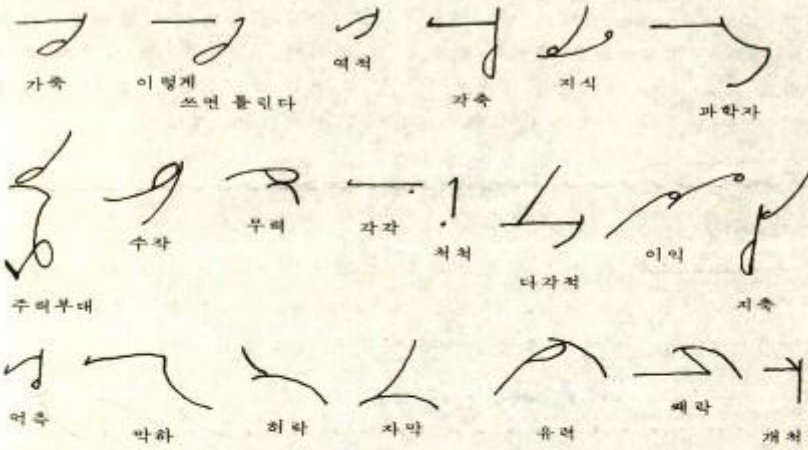 가축 이렇게 쓰면 틀린다 역적 각축 지식 과학자
주력부대 수작 무력 각각 척척 다각적 이익 지축
억측 막하 허락 자막 유력 쾌락 개척